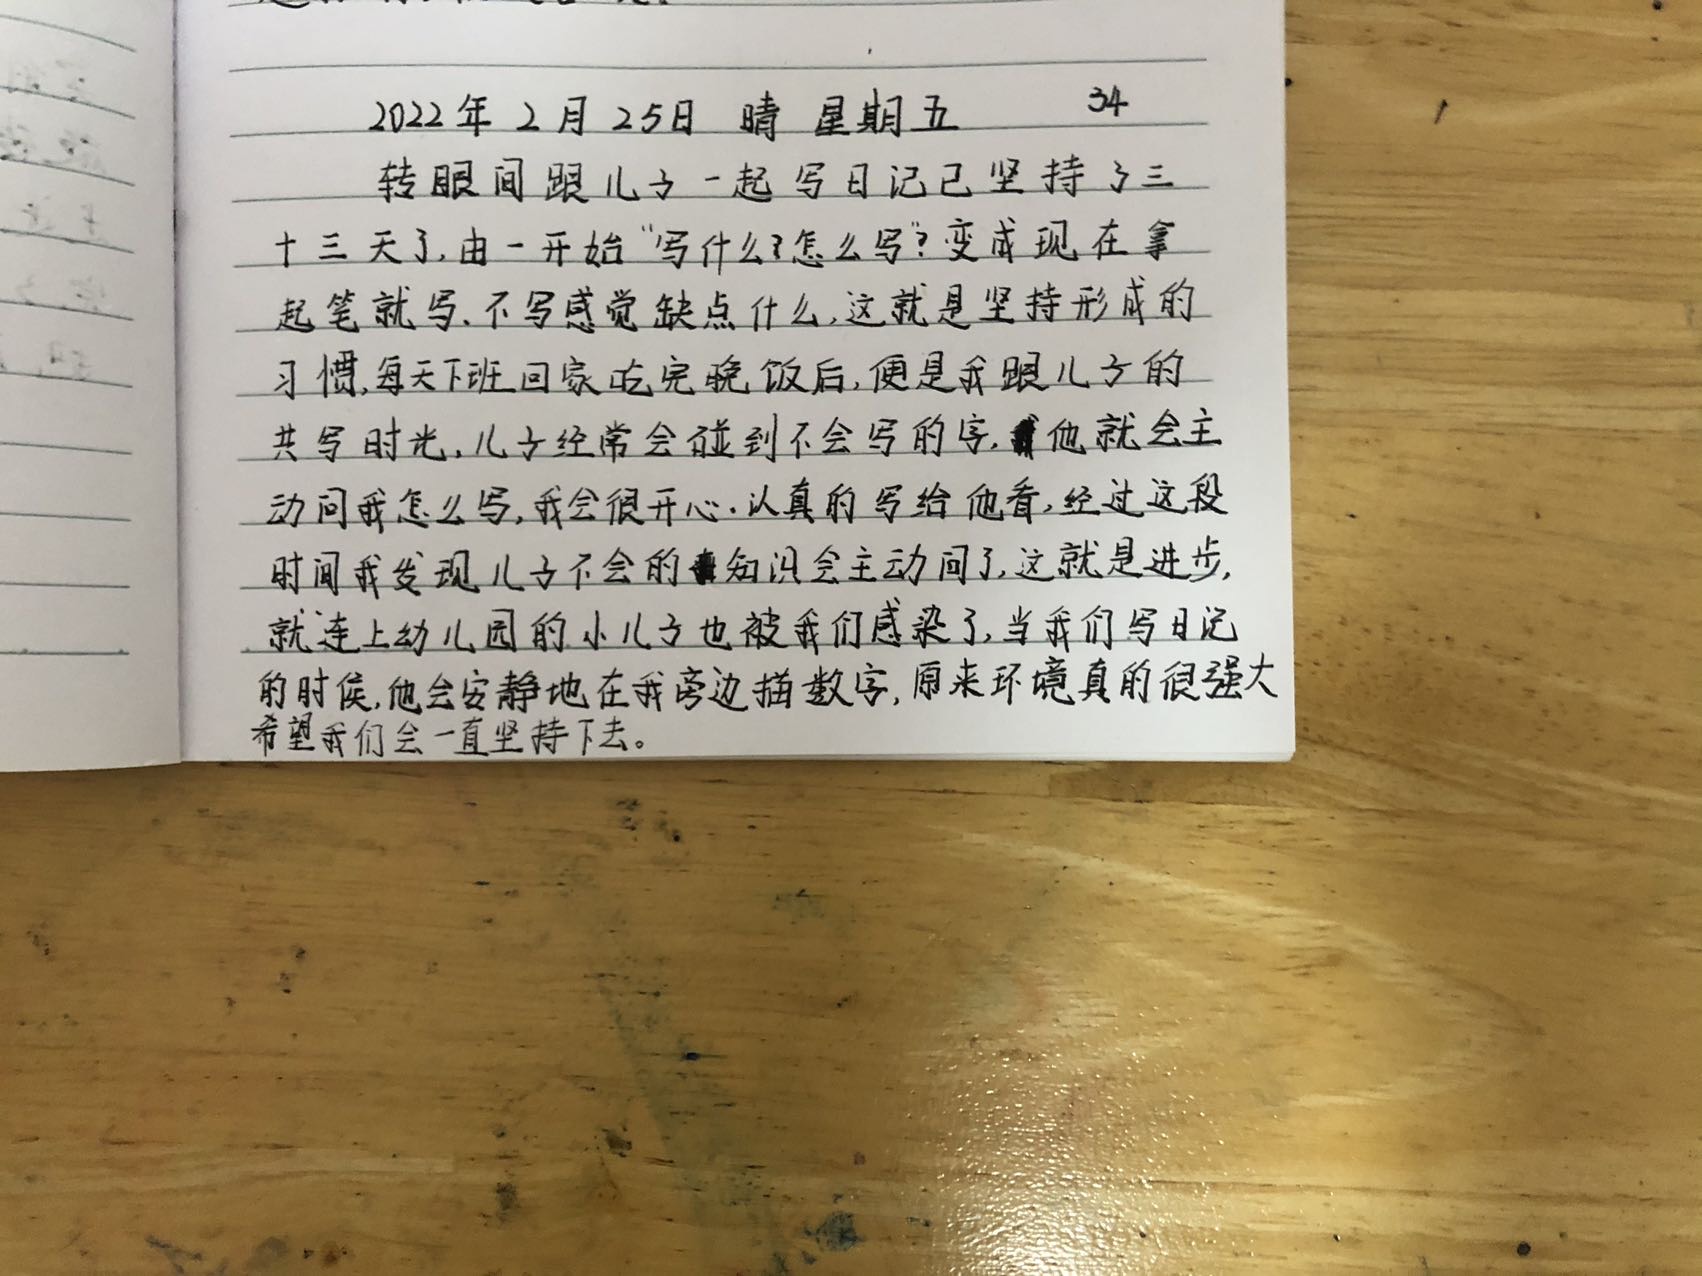 2022年2月25日 晴 星期五 34
转眼间跟儿子一起写日记已坚持了三
十三天了,由一开始“写什么?怎么写”?变成现在拿
起笔就写、不写感觉缺点什么,这就是坚持形成的
习惯,每天下班回家吃完晚饭后,便是我跟儿子的
共写时光,儿子经常会碰到不会写的字,他就会主
动问我怎么写,我会很开心.认真的写给他看,经过这段
时间我发现儿子不会的知识会主动问了,这就是进步,
就连上幼儿园的小儿子也被我们感染了,当我们写日记
的时候,他会安静地在我旁边描数字,原来环境真的很强大
希望我们会一直坚持下去。